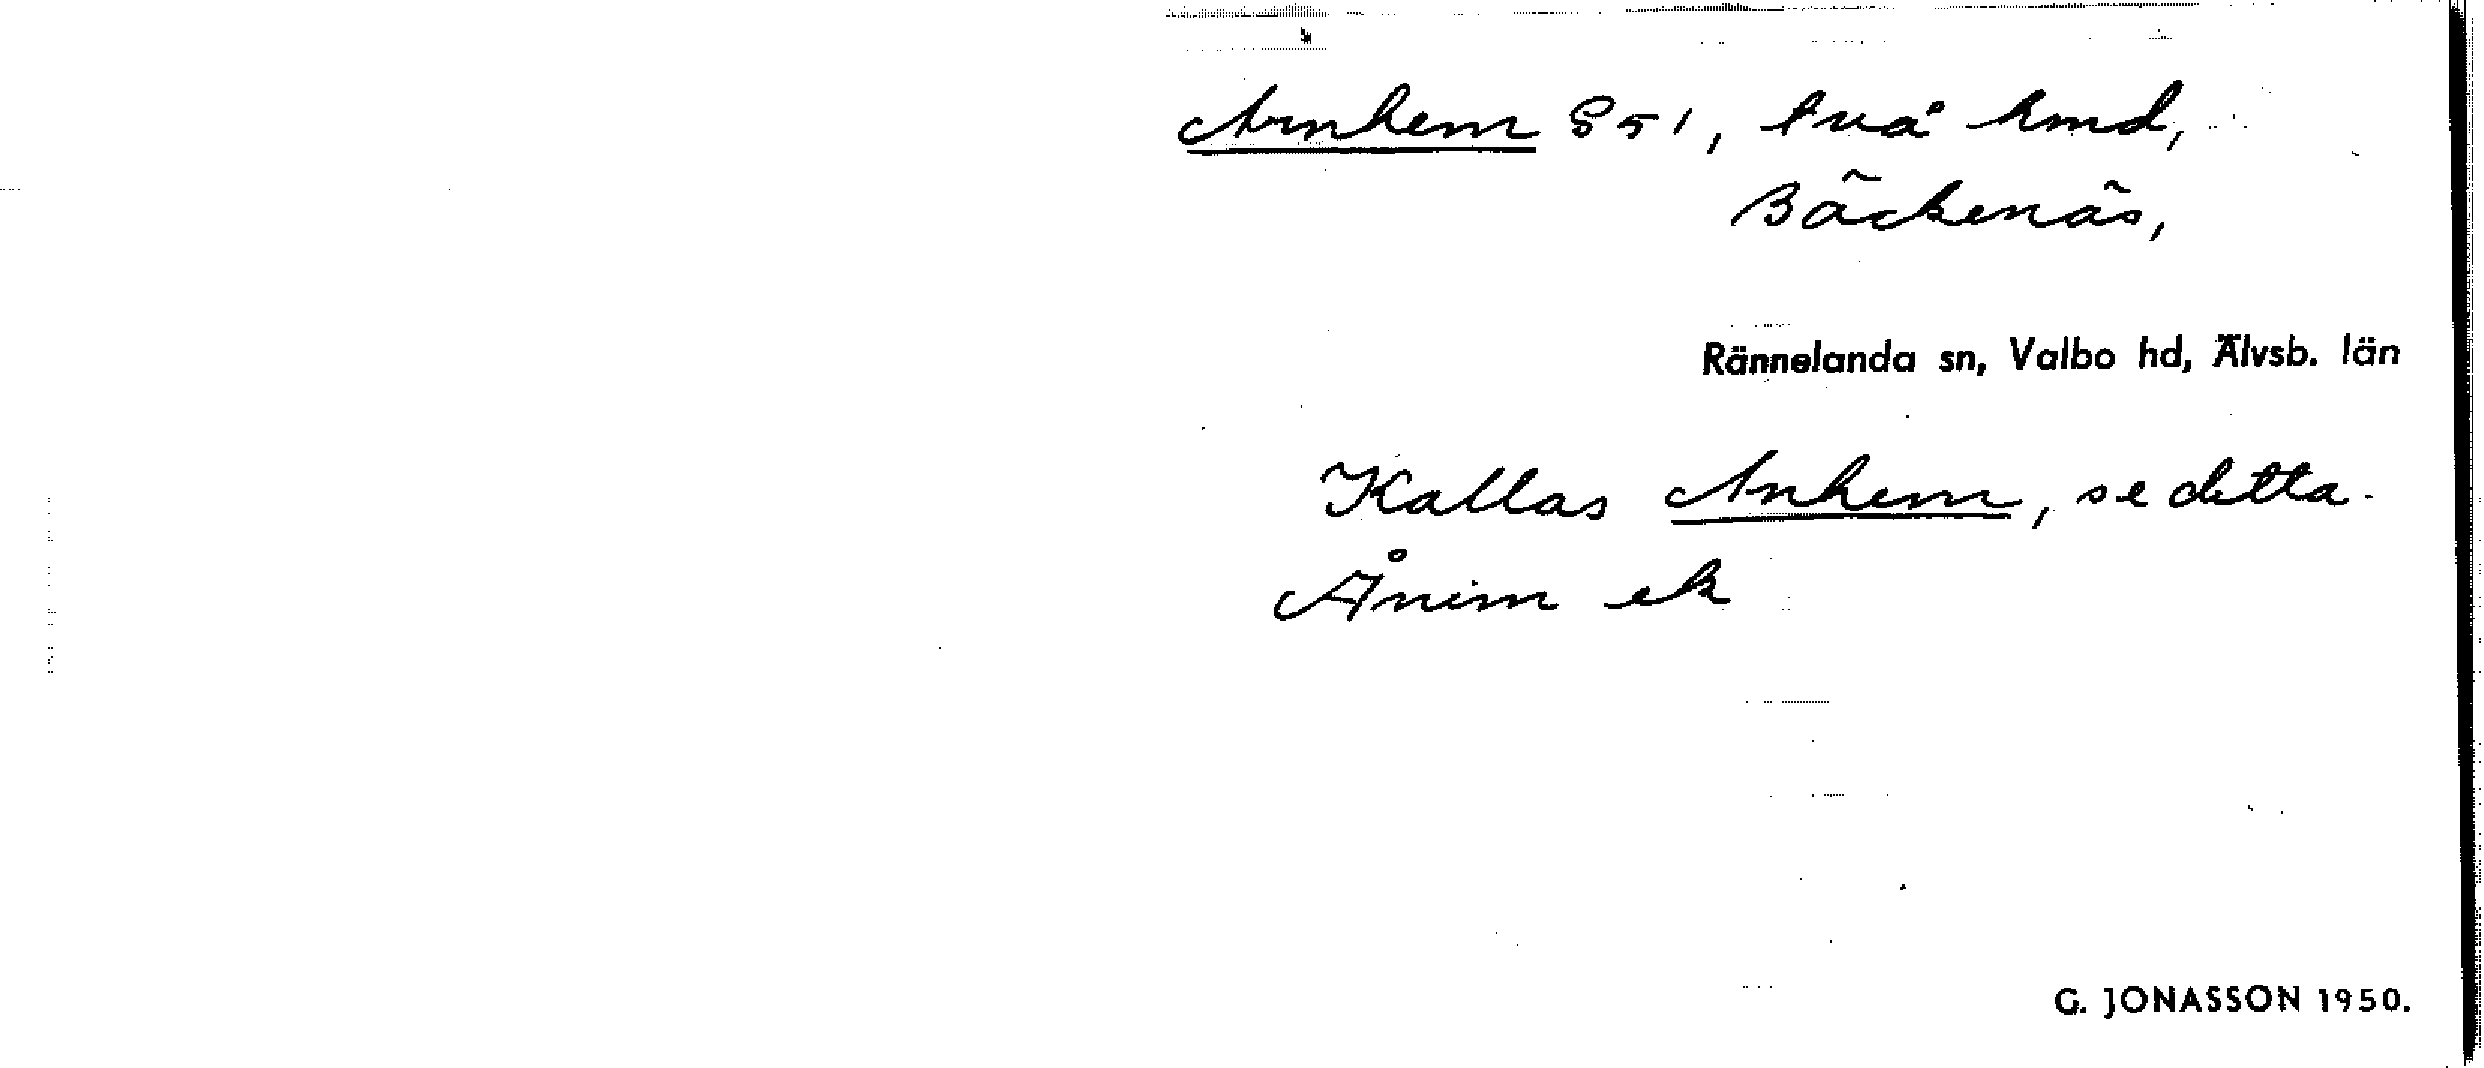 Arnhem 851, två hmd,
Bäckenäs,
Rännelanda sn, Valbo hd, Älvsb. län
Kallas Anhem, se detta.
Ånim ek
G. JONASSON 1950.